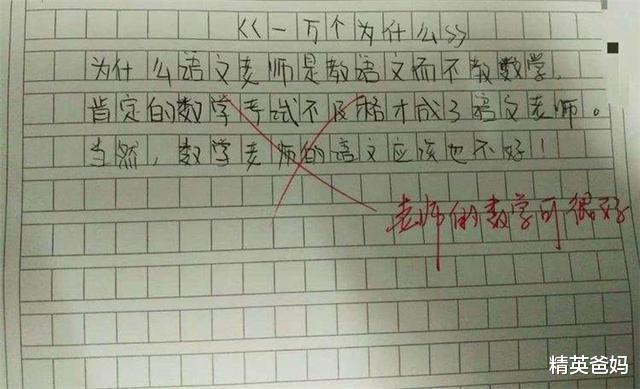 《一万个为什么》
为什么语文老师是教语文而不教数学,
肯定的数学考试不及格才成了语文老师。
当然,数学老师的语文应该也不好!
老师的数学可很好
精英爸妈